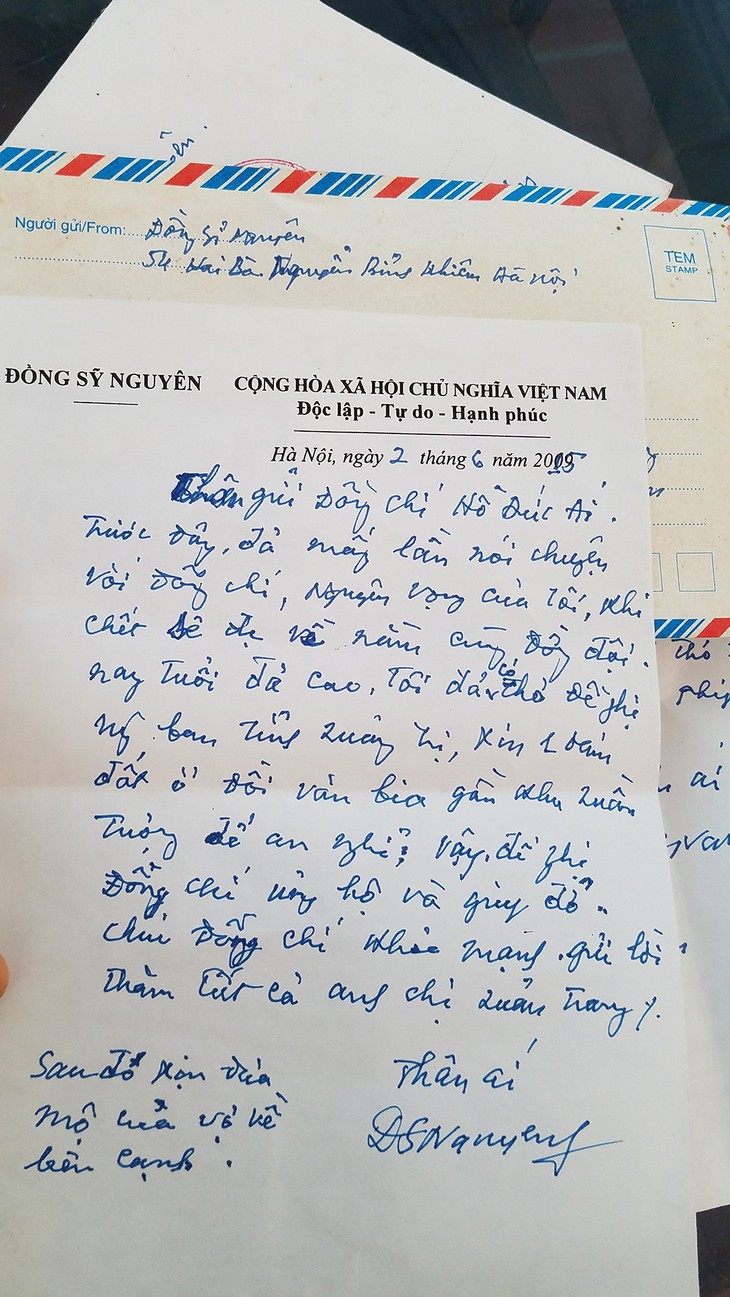 Người gửi/From: Đồng Sỹ Nguyên
54 Hai Bà Nguyễn Bỉnh Khiêm Hà Nội
TEM
STAMP
ĐỒNG SỸ NGUYÊN
CỘNG HÒA XÃ HỘI CHỦ NGHĨA VIỆT NAM
Độc lập - Tự do - Hạnh phúc
Hà Nội, ngày 2 tháng 6 năm 2015
Thân gửi Đồng chí Hồ Đức Ai.
Trước đây, đã mấy lần nói chuyện
với đồng chí, Nguyện vọng của tôi, khi
chết sẽ về nằm cùng đồng đội.
nay tuổi đã cao, tôi đã có thơ đề nghị
ban tỉnh Quảng Trị, xin 1 đám
đất ở đồi văn bia gần khu quần
tượng để an nghỉ; vậy, đề nghị
Đồng chí ủng hộ và giúp đỡ.
chúc Đồng chí khỏe mạnh. gửi lời
thăm tất cả anh chị quản trang ./.
Thân ái
DSNguyen
Sau đó xin đưa
mộ của vợ về
bên cạnh.
ai